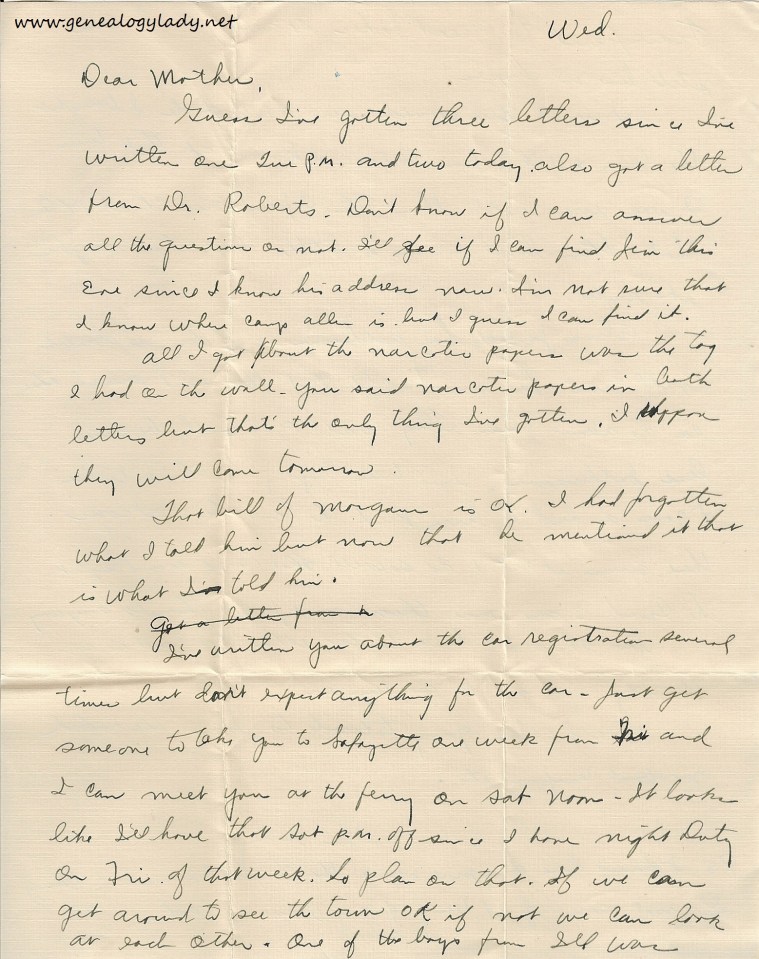 www.genealogylady.net
Wed.
Dear Mother,
Guess I've gotten three letters since I've
written one Tue P.M. and two today. also got a letter
from Dr. Roberts. Don't know if I can answer
all the question or not. I'll see if I can find Jim this
Eve since I know his address now. I'm not sure that
I know where camp allen is but I guess I can find it.
all I got about the narcotic papers was the tag
I had on the wall - you said narcotic papers in both
letters but that's the only thing I've gotten. I suppose
they will come tomorrow.
That bill of Morgans is OK. I had forgotten
what I told him but now that he mentioned it that
is what I told him.
Got a letter from
I've written you about the car registration several
times but don't expect anything for the car - Just get
someone to take you to Lafayette one week from Fri and
I can meet you at the ferry on Sat noon - It looks
like I'll have that Sat p.m. off since I have night Duty
on Fri. of that week. So plan on that. If we can
get around to see the town OK if not we can look
at each other. One of the boys from Ill was